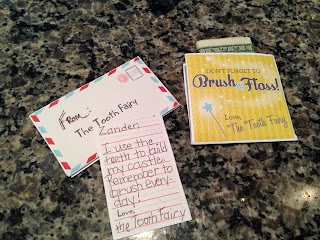 From:
The Tooth Fairy
Zander,
I use the
teeth to build
my castle.
Remember to
brush every-
day!
Love,
the Tooth Fairy
DON'T FORGET TO
Brush & Floss!
Love,
The Tooth Fairy